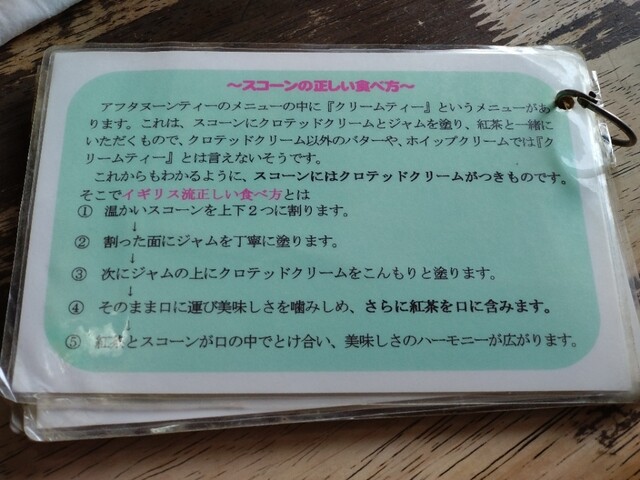 ～スコーンの正しい食べ方～
アフタヌーンティーのメニューの中に『クリームティー』というメニューがあ
ります。これは、スコーンにクロテッドクリームとジャムを塗り、紅茶と一緒に
いただくもので、クロテッドクリーム以外のバターや、ホイップクリームでは『ク
リームティー』とは言えないそうです。
これからもわかるように、スコーンにはクロテッドクリームがつきものです。
そこでイギリス流正しい食べ方とは
① 温かいスコーンを上下２つに割ります。
↓
② 割った面にジャムを丁寧に塗ります。
↓
③ 次にジャムの上にクロテッドクリームをこんもりと塗ります。
↓
④ そのまま口に運び美味しさを噛みしめ、さらに紅茶を口に含みます。
↓
⑤ 紅茶とスコーンが口の中でとけ合い、美味しさのハーモニーが広がります。